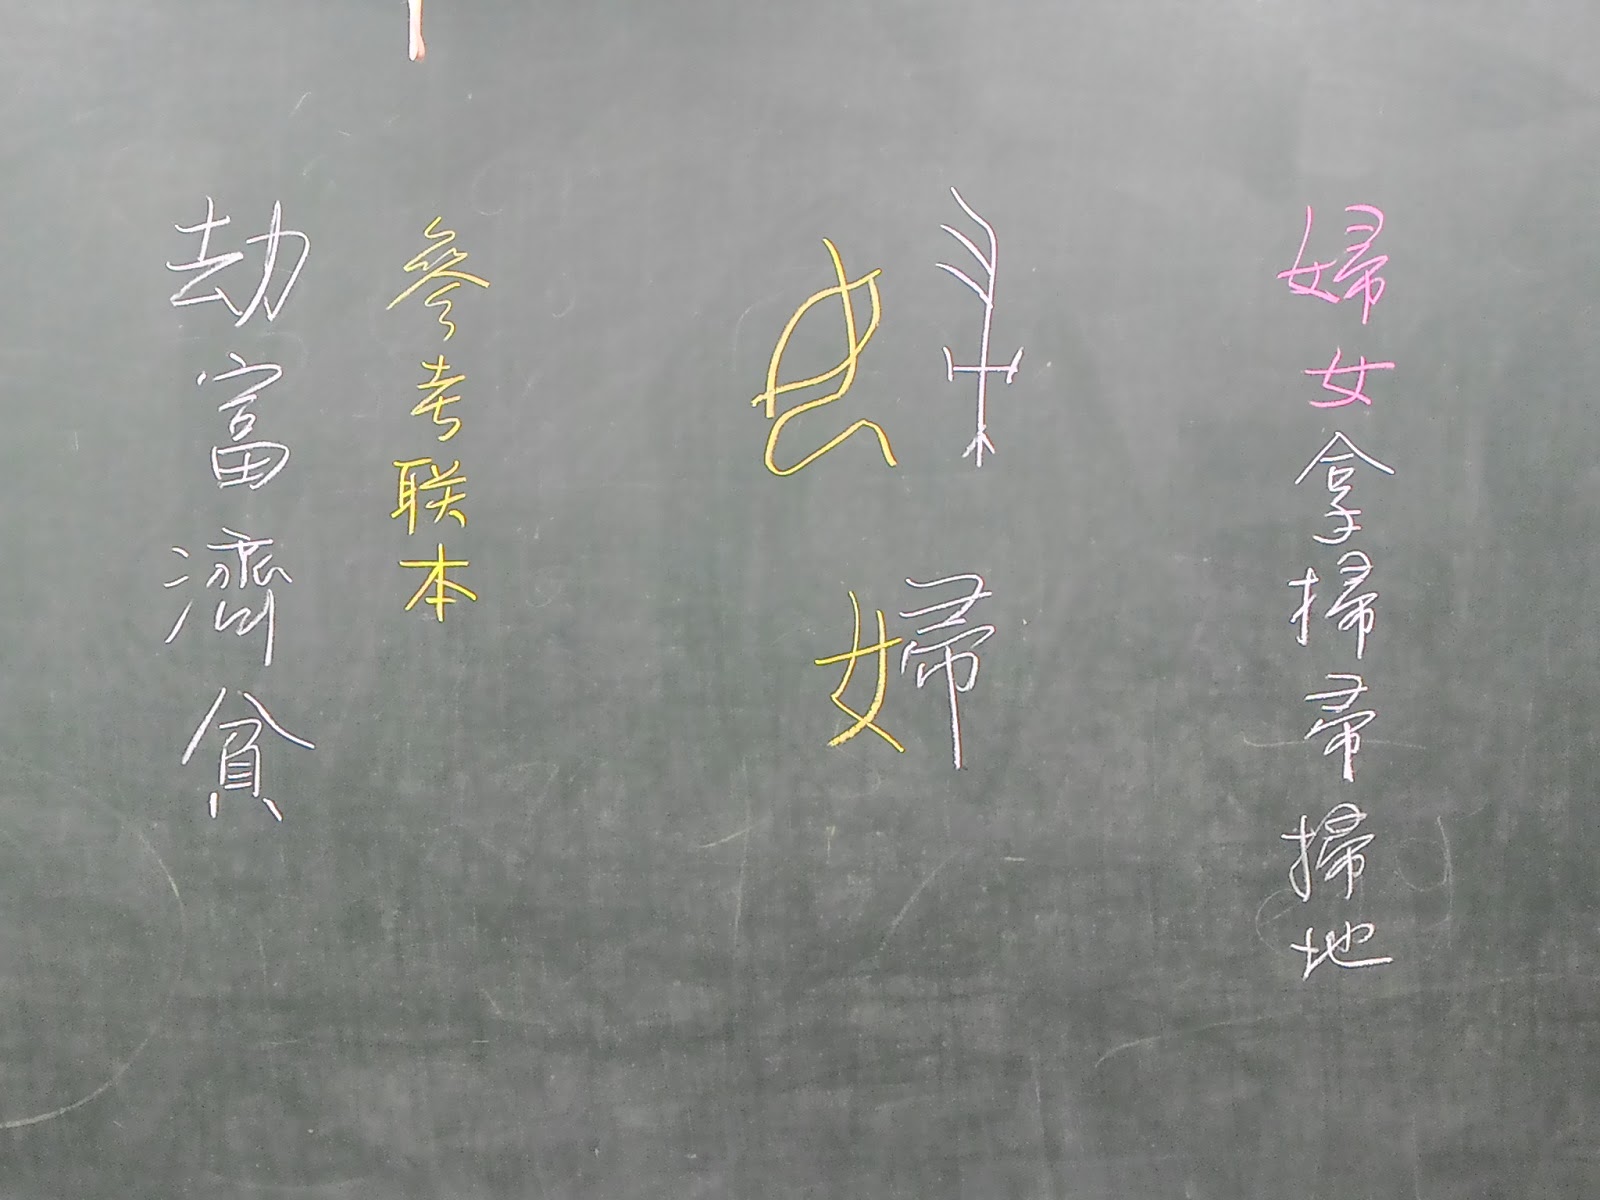 婦女拿掃帚掃地
婦
參考联本
劫富濟貧